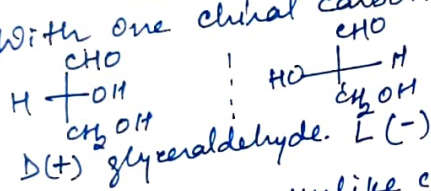 With one chiral carbon
CHO CHO
H OH HO H
CH2OH CH2OH
D(+) glyceraldehyde. L(-)
unlike